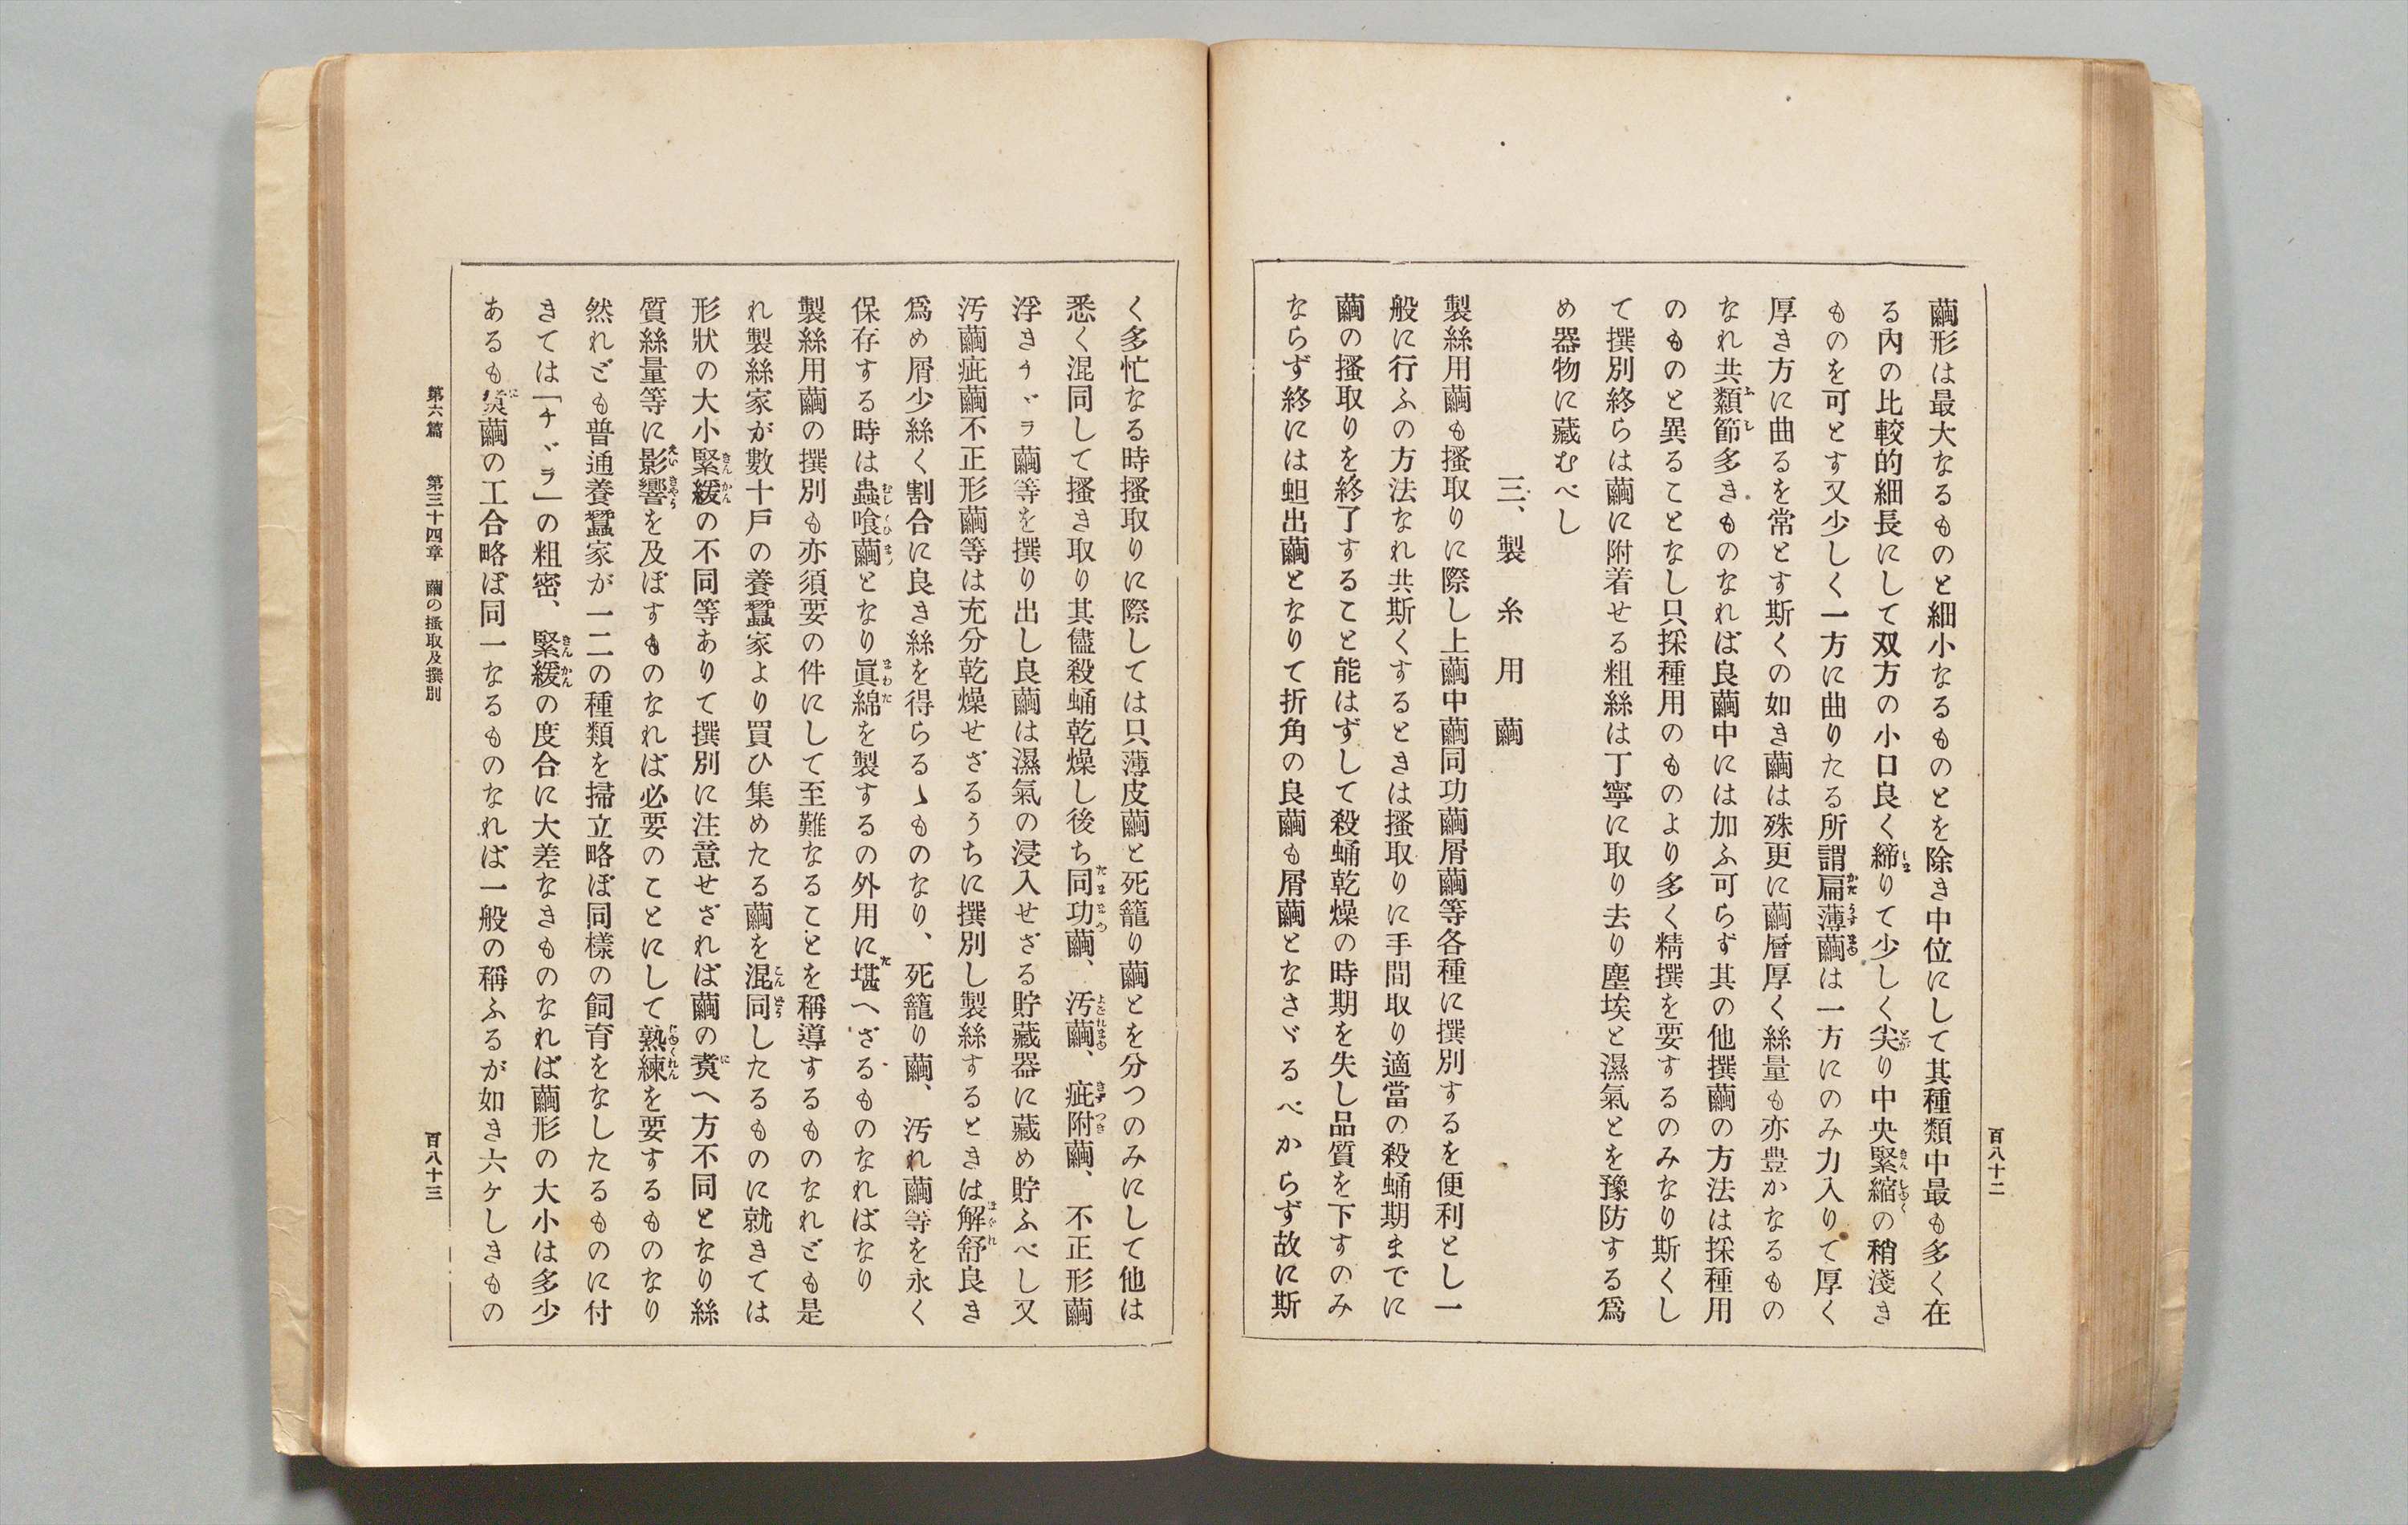 百八十二
繭形は最大なるものと細小なるものとを除き中位にして其種類中最も多く在
る內の比較的細長にして双方の小口良く締りて少しく尖り中央緊縮の稍淺き
ものを可とす又少しく一方に曲りたる所謂扁薄繭は一方にのみ力入りて厚く
厚き方に曲るを常とす斯くの如き繭は殊更に繭層厚く絲量も亦豊かなるもの
なれ共纇節多きものなれば良繭中には加ふ可らず其の他撰繭の方法は採種用
のものと異ることなし只採種用のものより多く精撰を要するのみなり斯くし
て撰別終らは繭に附着せる粗絲は丁寧に取り去り塵埃と濕氣とを豫防する爲
め器物に藏むべし
三、製糸用繭
製絲用繭も搔取りに際し上繭中繭同功繭屑繭等各種に撰別するを便利とし一
般に行ふの方法なれ共斯くするときは搔取りに手間取り適當の殺蛹期までに
繭の搔取りを終了すること能はずして殺蛹乾燥の時期を失し品質を下すのみ
ならず終には蛆出繭となりて折角の良繭も屑繭となさゞるべからず故に斯
く多忙なる時搔取りに際しては只薄皮繭と死籠り繭とを分つのみにして他は
悉く混同して搔き取り其儘殺蛹乾燥し後ち同功繭、汚繭、疵附繭、不正形繭
浮きチヾラ繭等を撰り出し良繭は濕氣の浸入せざる貯藏器に藏め貯ふべし又
汚繭疵繭不正形繭等は充分乾燥せざるうちに撰別し製絲するときは解舒良き
爲め屑少絲く割合に良き絲を得らるゝものなり、死籠り繭、汚れ繭等を永く
保存する時は蟲喰繭となり眞綿を製するの外用に堪へざるものなればなり
製絲用繭の撰別も亦須要の件にして至難なることを稱導するものなれども是
れ製絲家が數十戶の養蠶家より買ひ集めたる繭を混同したるものに就きては
形狀の大小緊緩の不同等ありて撰別に注意せざれば繭の煑へ方不同となり絲
質絲量等に影響を及ぼすものなれば必要のことにして熟練を要するものなり
然れども普通養蠶家が一二の種類を掃立略ぼ同樣の飼育をなしたるものに付
きては「チヾラ」の粗密、緊緩の度合に大差なきものなれば繭形の大小は多少
あるも煑繭の工合略ぼ同一なるものなれば一般の稱ふるが如き六ケしきもの
第六篇　第三十四章　繭の搔取及撰別
百八十三